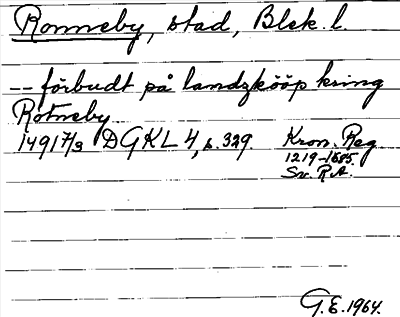 Ronneby, stad, Blek. l.
-- förbudt på landzkööp kring
Rotneby
1491 7/3 DGKL 4, s. 329. Kron. Reg
1219-1685.
Sv. R.A.
G.E. 1964.